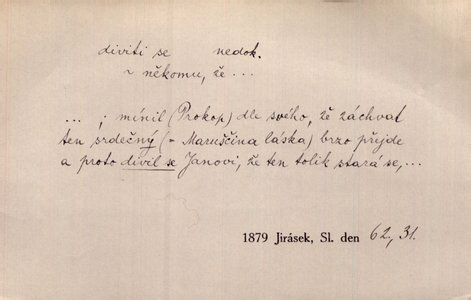 diviti se nedok.
~ někomu, že ...
... ; mínil (Prokop) dle svého, že záchvat
ten srdečný (= Maruščina láska) brzo přijde
a proto divil se Janovi, že ten tolik stará se, ...
1879 Jirásek, Sl. den 62, 31.